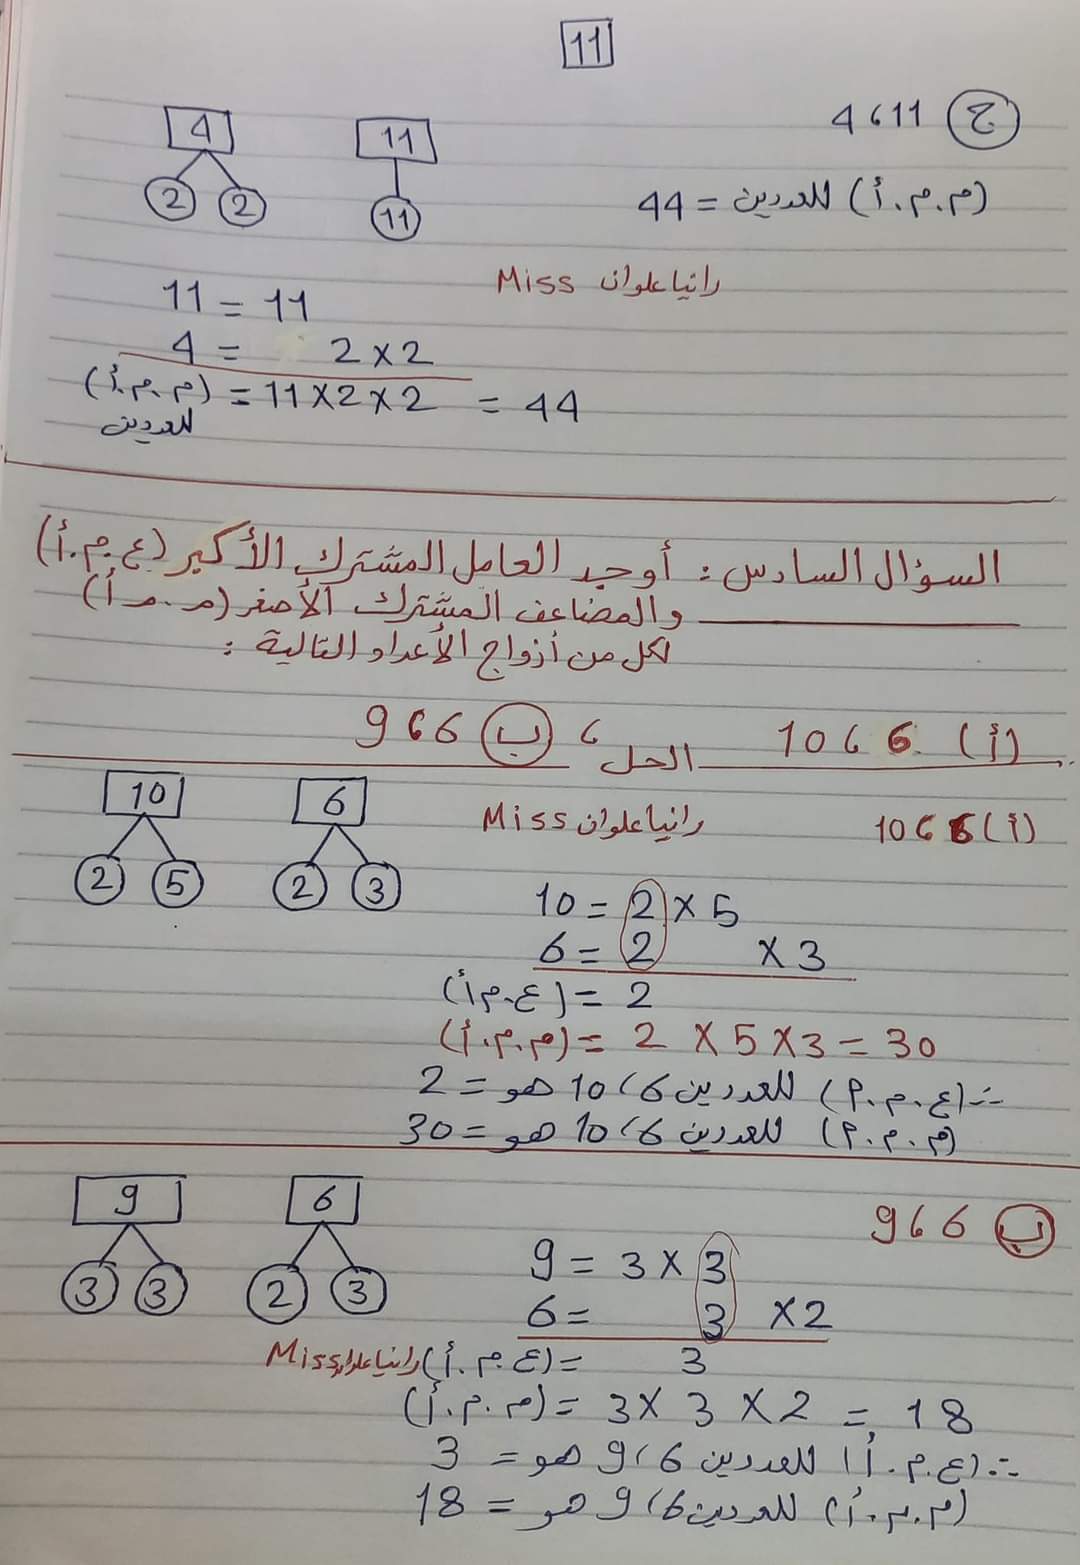 11
ج 11 ، 4
4 11
2 2 11
(م.م.أ) للعددين = 44
Miss رانيا علوان
11 = 11
4 = 2 × 2
(م.م.أ) للعددين = 11 × 2 × 2 = 44
السؤال السادس : أوجد العامل المشترك الأكبر (ع.م.أ)
والمضاعف المشترك الأصغر (م.م.أ)
لكل من أزواج الأعداد التالية :
(أ) 6 ، 10 ، ب 6 ، 9
الحل
10 6
2 5 2 3
Miss رانيا علوان
(أ) 6 ، 10
10 = 2 × 5
6 = 2 × 3
(ع.م.أ) = 2
(م.م.أ) = 2 × 5 × 3 = 30
∴ (ع.م.أ) للعددين 6 ، 10 هو = 2
(م.م.أ) للعددين 6 ، 10 هو = 30
9 6
3 3 2 3
ب 6 ، 9
9 = 3 × 3
6 = 3 × 2
Miss رانيا علوان
(ع.م.أ) = 3
(م.م.أ) = 3 × 3 × 2 = 18
∴ (ع.م.أ) للعددين 6 ، 9 هو = 3
(م.م.أ) للعددين 6 ، 9 هو = 18